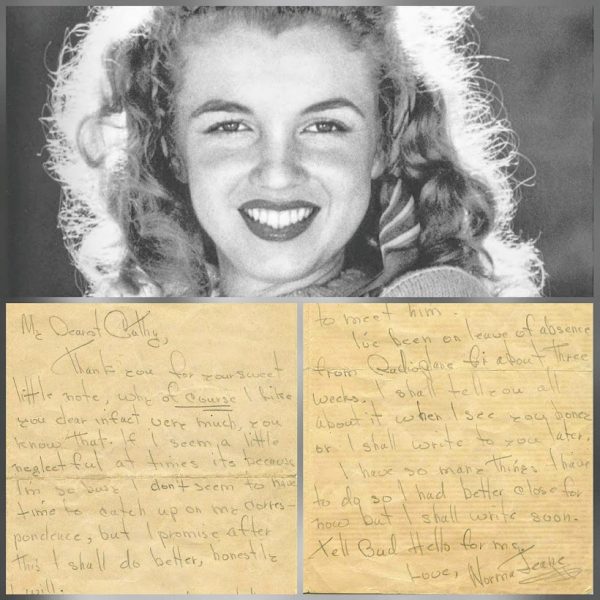 My Dearest Cathy,
Thank you for your sweet
little note, why of course I like
you dear infact very much, you
know that. If I seem a little
neglectful at times its because
I'm so busy I don't seem to have
time to catch up on my corres-
pondence, but I promise after
this I shall do better, honestly
I will.
to meet him.
I've been on leave of absence
from Radioplane for about three
weeks. I shall tell you all
about it when I see you honey
or I shall write to you later.
I have so many things I have
to do so I had better close for
now but I shall write soon.
Tell Bud Hello for me,
Love, Norma Jeane